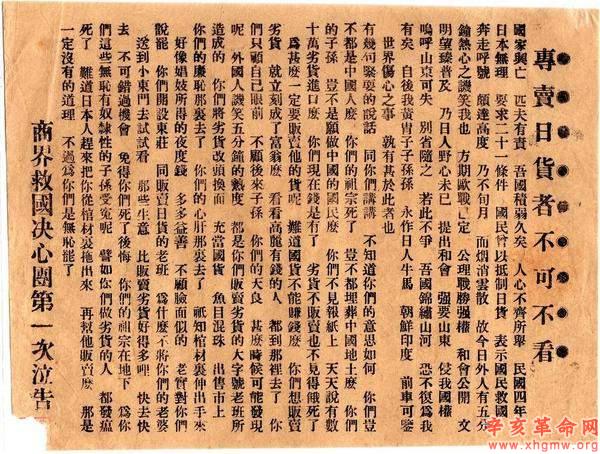 專賣日貨者不可不看
國家興亡 匹夫有責 吾國積弱久矣 人心不齊所舉 民國四年
日本無理 要求二十一條件 國民曾以抵制日貨 表示國民救國
奔走呼號 頗達高度 乃不旬月 而烟消雲散 故今日外人有五分
鐘熱心之譏笑我也 方期歐戰已定 公理戰勝强權 和會公開 文
明望臻普及 乃日人野心未已 提出和會 强要山東 侵我國權
嗚呼山東可失 別省隨之 若此不爭 吾國錦繡山河 恐不復爲我
有矣 自後我黃冑子子孫孫 永作日人牛馬 朝鮮印度 前車可鑒
世界傷心之事 孰有甚於此者也
有幾句緊要的說話 同你們講講 不知道你們的意思如何 你們豈
不都是中國人麽 你們的祖宗死了 豈不都埋葬中國地土麽 你們
的子孫 豈不是願做中國的國民麽 你們不見報紙上 天天說有數
十萬劣貨進口麽 你們現在錢是有了 劣貨不販賣也不見得餓死了
爲甚麽一定要販賣他的貨呢 難道國貨不能賺錢麽 你們想販賣
劣貨 就立刻成了富翁麽 看看高麗有錢的人 都到那裡去了 你
們只顧自己眼前 不顧後來子孫 你們的天良 甚麽時候可能發現
呢 外國人譏笑五分鐘的熱度 都是你們販賣劣貨的大字號老班所
造成的 你們將劣貨改頭換面 充當國貨 魚目混珠 出售市上
你們的廉恥那裏去了 你們的心肝那裏去了 祇知棺材裏伸出手來
好像娼妓所得的夜度錢 多多益善 不顧臉面似的 老實對你們
說罷 你們開設東莊 同販賣日貨的老班 爲什麽不將你們的老婆
送到小東門去試試看 那些生意 比販賣劣貨好得多哩 快去快
去 不可錯過機會 免得你們死了後悔 你們的祖宗在地下 爲你
們這些無恥有奴隸性的子孫受寃呢 譬如你們做劣貨的人 都發瘟
死了 難道日本人趕來把你從棺材裏拖出來 再幫他販賣麽 那是
一定沒有的道理 不過爲你們是無恥罷了
商界救國決心團第一次泣告
辛亥革命网
www.xhgmw.org